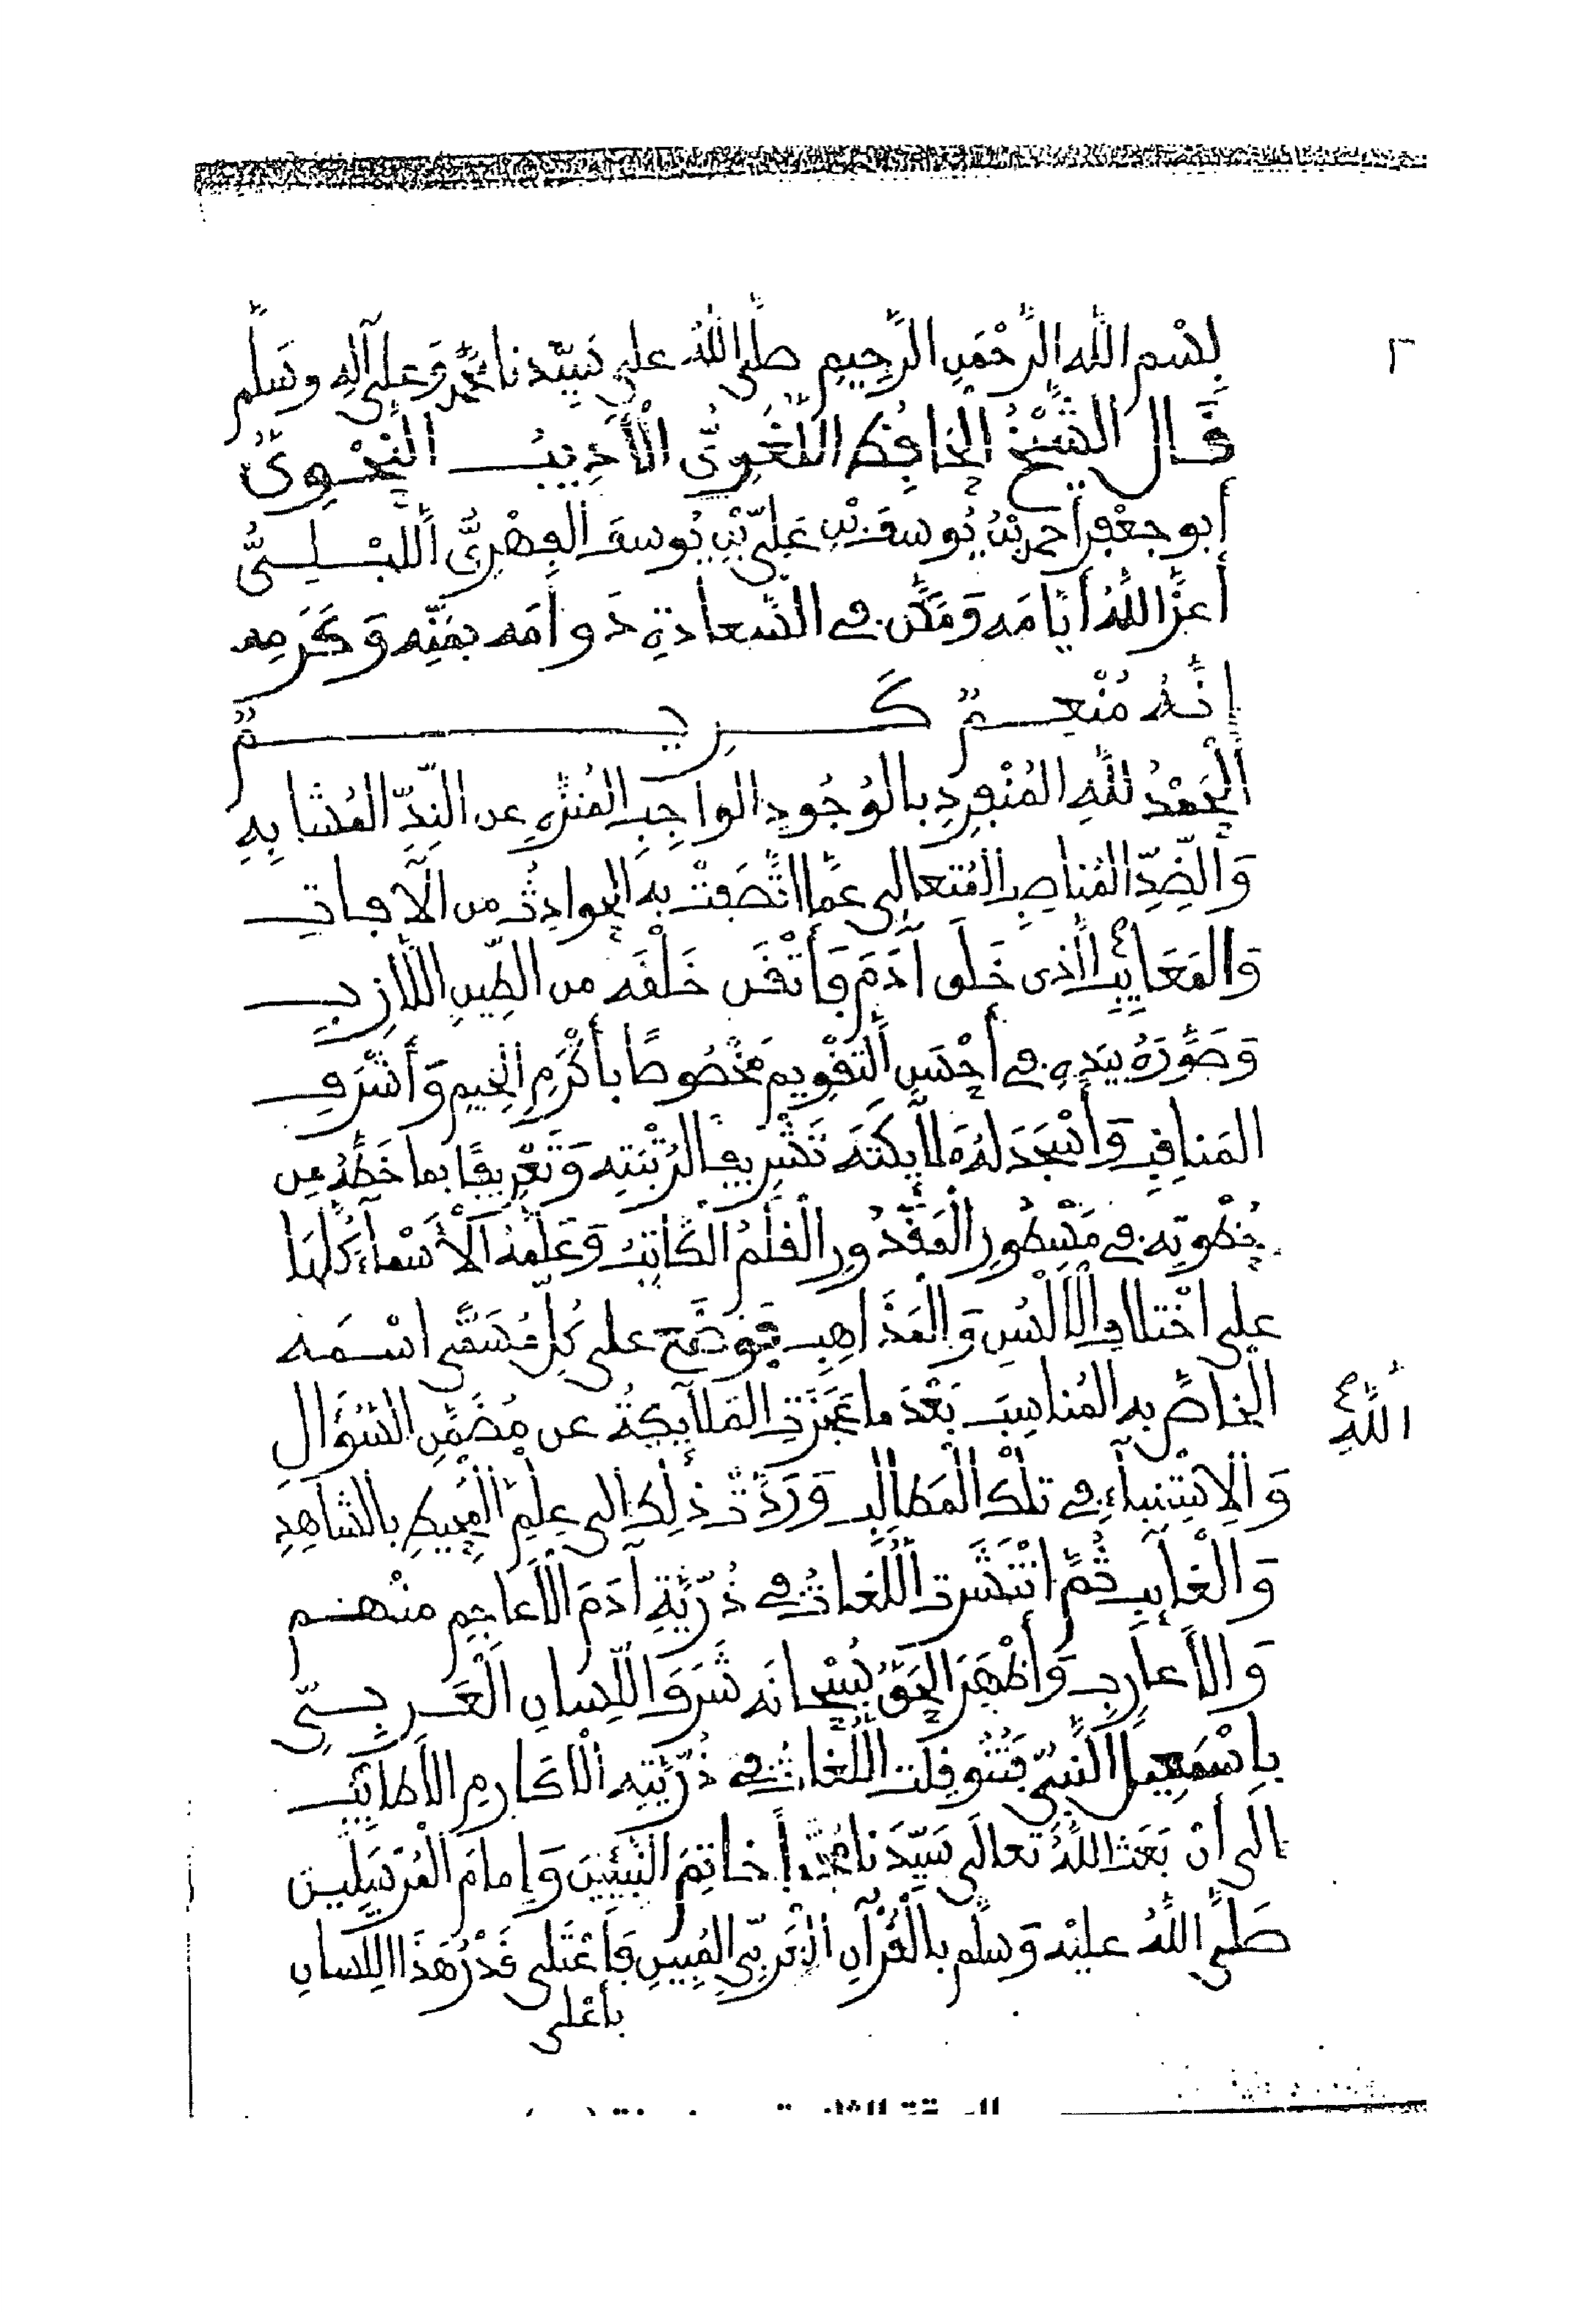 ٢
بِسْمِ اللَّهِ الرَّحْمَنِ الرَّحِيمِ صَلَّى اللَّهُ عَلَى سَيِّدِنَا مُحَمَّدٍ وَعَلَى آلِهِ وَسَلَّم
قَالَ الشَّيْخُ الحَافِظُ اللُّغَوِيُّ الأَدِيبُ النَّحْوِيُّ
أبو جعْفر أحمد بْنُ يُوسف بْنِ عَلِيّ بْنِ يُوسف الفِهْرِيُّ اللَّبْلِيُّ
أعزَّ اللَّهُ أيَّامَه وَمَكَّن في السَّعادةِ دَوامَه بمَنِّه وَكَرَمِه
إنَّهُ مُنْعِمٌ كَرِيمٌ
الحَمْدُ للَّهِ المُنْفَرِدِ بالوُجُودِ الواجِبِ المُنزَّهِ عن النِّدِّ المُشابِهِ
وَالضِّدِّ المُناصِبِ المُتعالِي عَمَّا اتَّصَفَتْ بِهِ الحوادِثُ من الآفاتِ
وَالمَعَايِبِ الَّذِى خَلَقَ آدَمَ وَأَتْقَنَ خَلْقَه من الطِّينِ اللَّازِبِ
وَصَوَّرَهُ بِيَدِهِ في أحْسَنِ التَّقْوِيمِ مَخْصُوصًا بأكْرَمِ الخِيمِ وَأشْرَفِ
المَناقِبِ وَأَسْجَدَ لَهُ مَلَآيِكَتَه تَشْرِيفًا لِرُتْبَتِه وَتَعْرِيفًا بما خَطَّهُ مِن
حُظْوتِه في مَسْطُورِ المَقْدُورِ القَلَمُ الكَاتِبُ وَعَلَّمَهُ الأَسْماءَ كُلَّها
على اخْتلافِ الأَلْسُنِ وَالمَذَاهِبِ فوَضَعَ على كُلِّ مُسَمًّى اسْمَه
الخاصَّ به المُناسِبَ بَعْدَ ما عَجَزَتِ المَلآيِكَةُ عن مُضَمَّنِ السُّؤَالِ
اللَّهِ
وَالاِسْتِنباءِ في تلْك المَطالِبِ وَرَدَّتْ ذلِك إلى عِلْمِ المُحِيطِ بالشاهِدِ
وَالْغايِبِ ثُمَّ انْتَشَرتِ اللُّغاتُ في ذُرِّيَّةِ آدَمَ الأعاجِمِ منْهم
وَالأعارِبِ وَأظْهَرَ الحَقُّ سُبْحانَه شَرَفَ اللِّسانِ الْعَرَبِيِّ
بإسْمعِيلَ النَّبِيِّ فَتُنُوقِلَتِ اللُّغاتُ في ذُرِّيَّتِه الأَكارِمِ الأطايِبِ
إلى أنْ بَعَثَ اللَّهُ تعالَى سَيِّدَنا مُحَمَّدًا خاتِمَ النَّبِيِّينَ وَإمامَ الْمُرْسَلِينَ
صَلَّى اللَّهُ عليْه وَسلَّم بالْقُرْآنِ الْعَرَبِيِّ المُبِينِ فَاعْتَلَى قَدْرُ هَذَا اللِّسانِ
بأعْلى